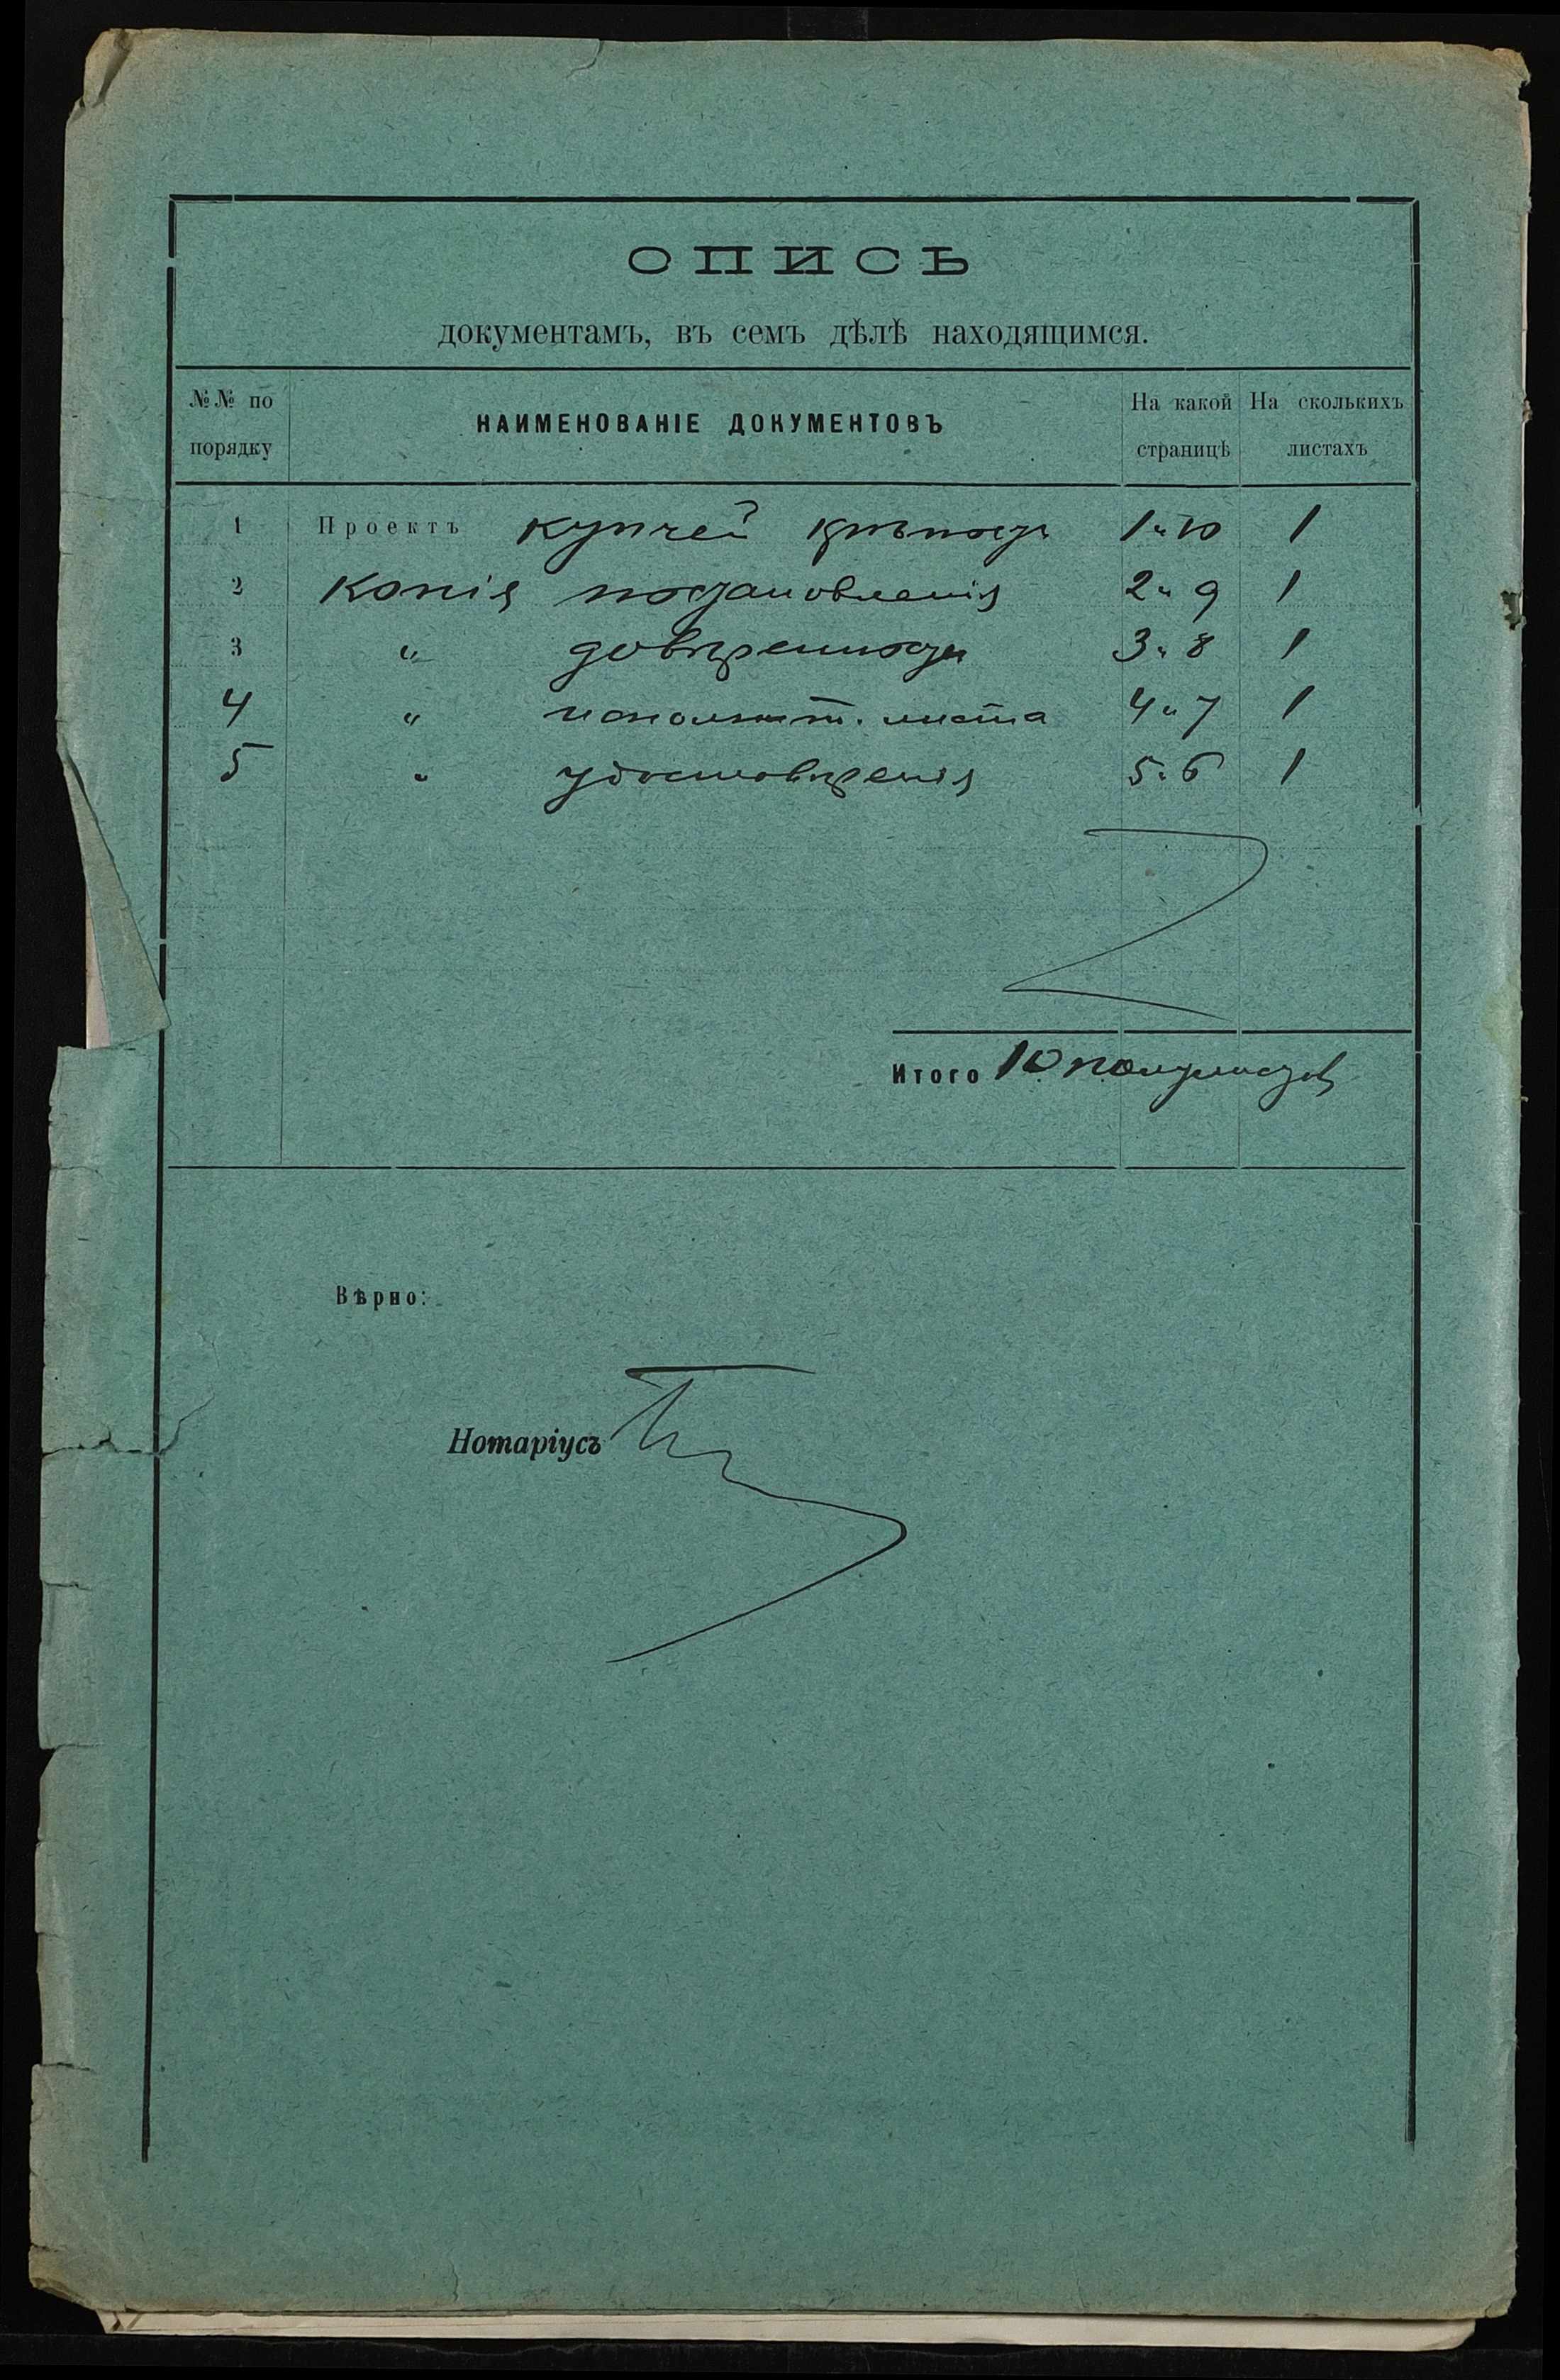 ОПИСЬ
документамъ, въ семъ дѣлѣ находящимся.
№№ по порядку НАИМЕНОВАНІЕ ДОКУМЕНТОВЪ На какой страницѣ На сколькихъ листахъ
1 Проектъ купчей крѣпости 1 и 10 1
2 Копія постановленія 2 и 9 1
3 " довѣренности 3 и 8 1
4 " исполнит. листа 4 и 7 1
5 " удостовѣренія 5 и 6 1
Итого 10 полулистов
Вѣрно:
Нотаріусъ